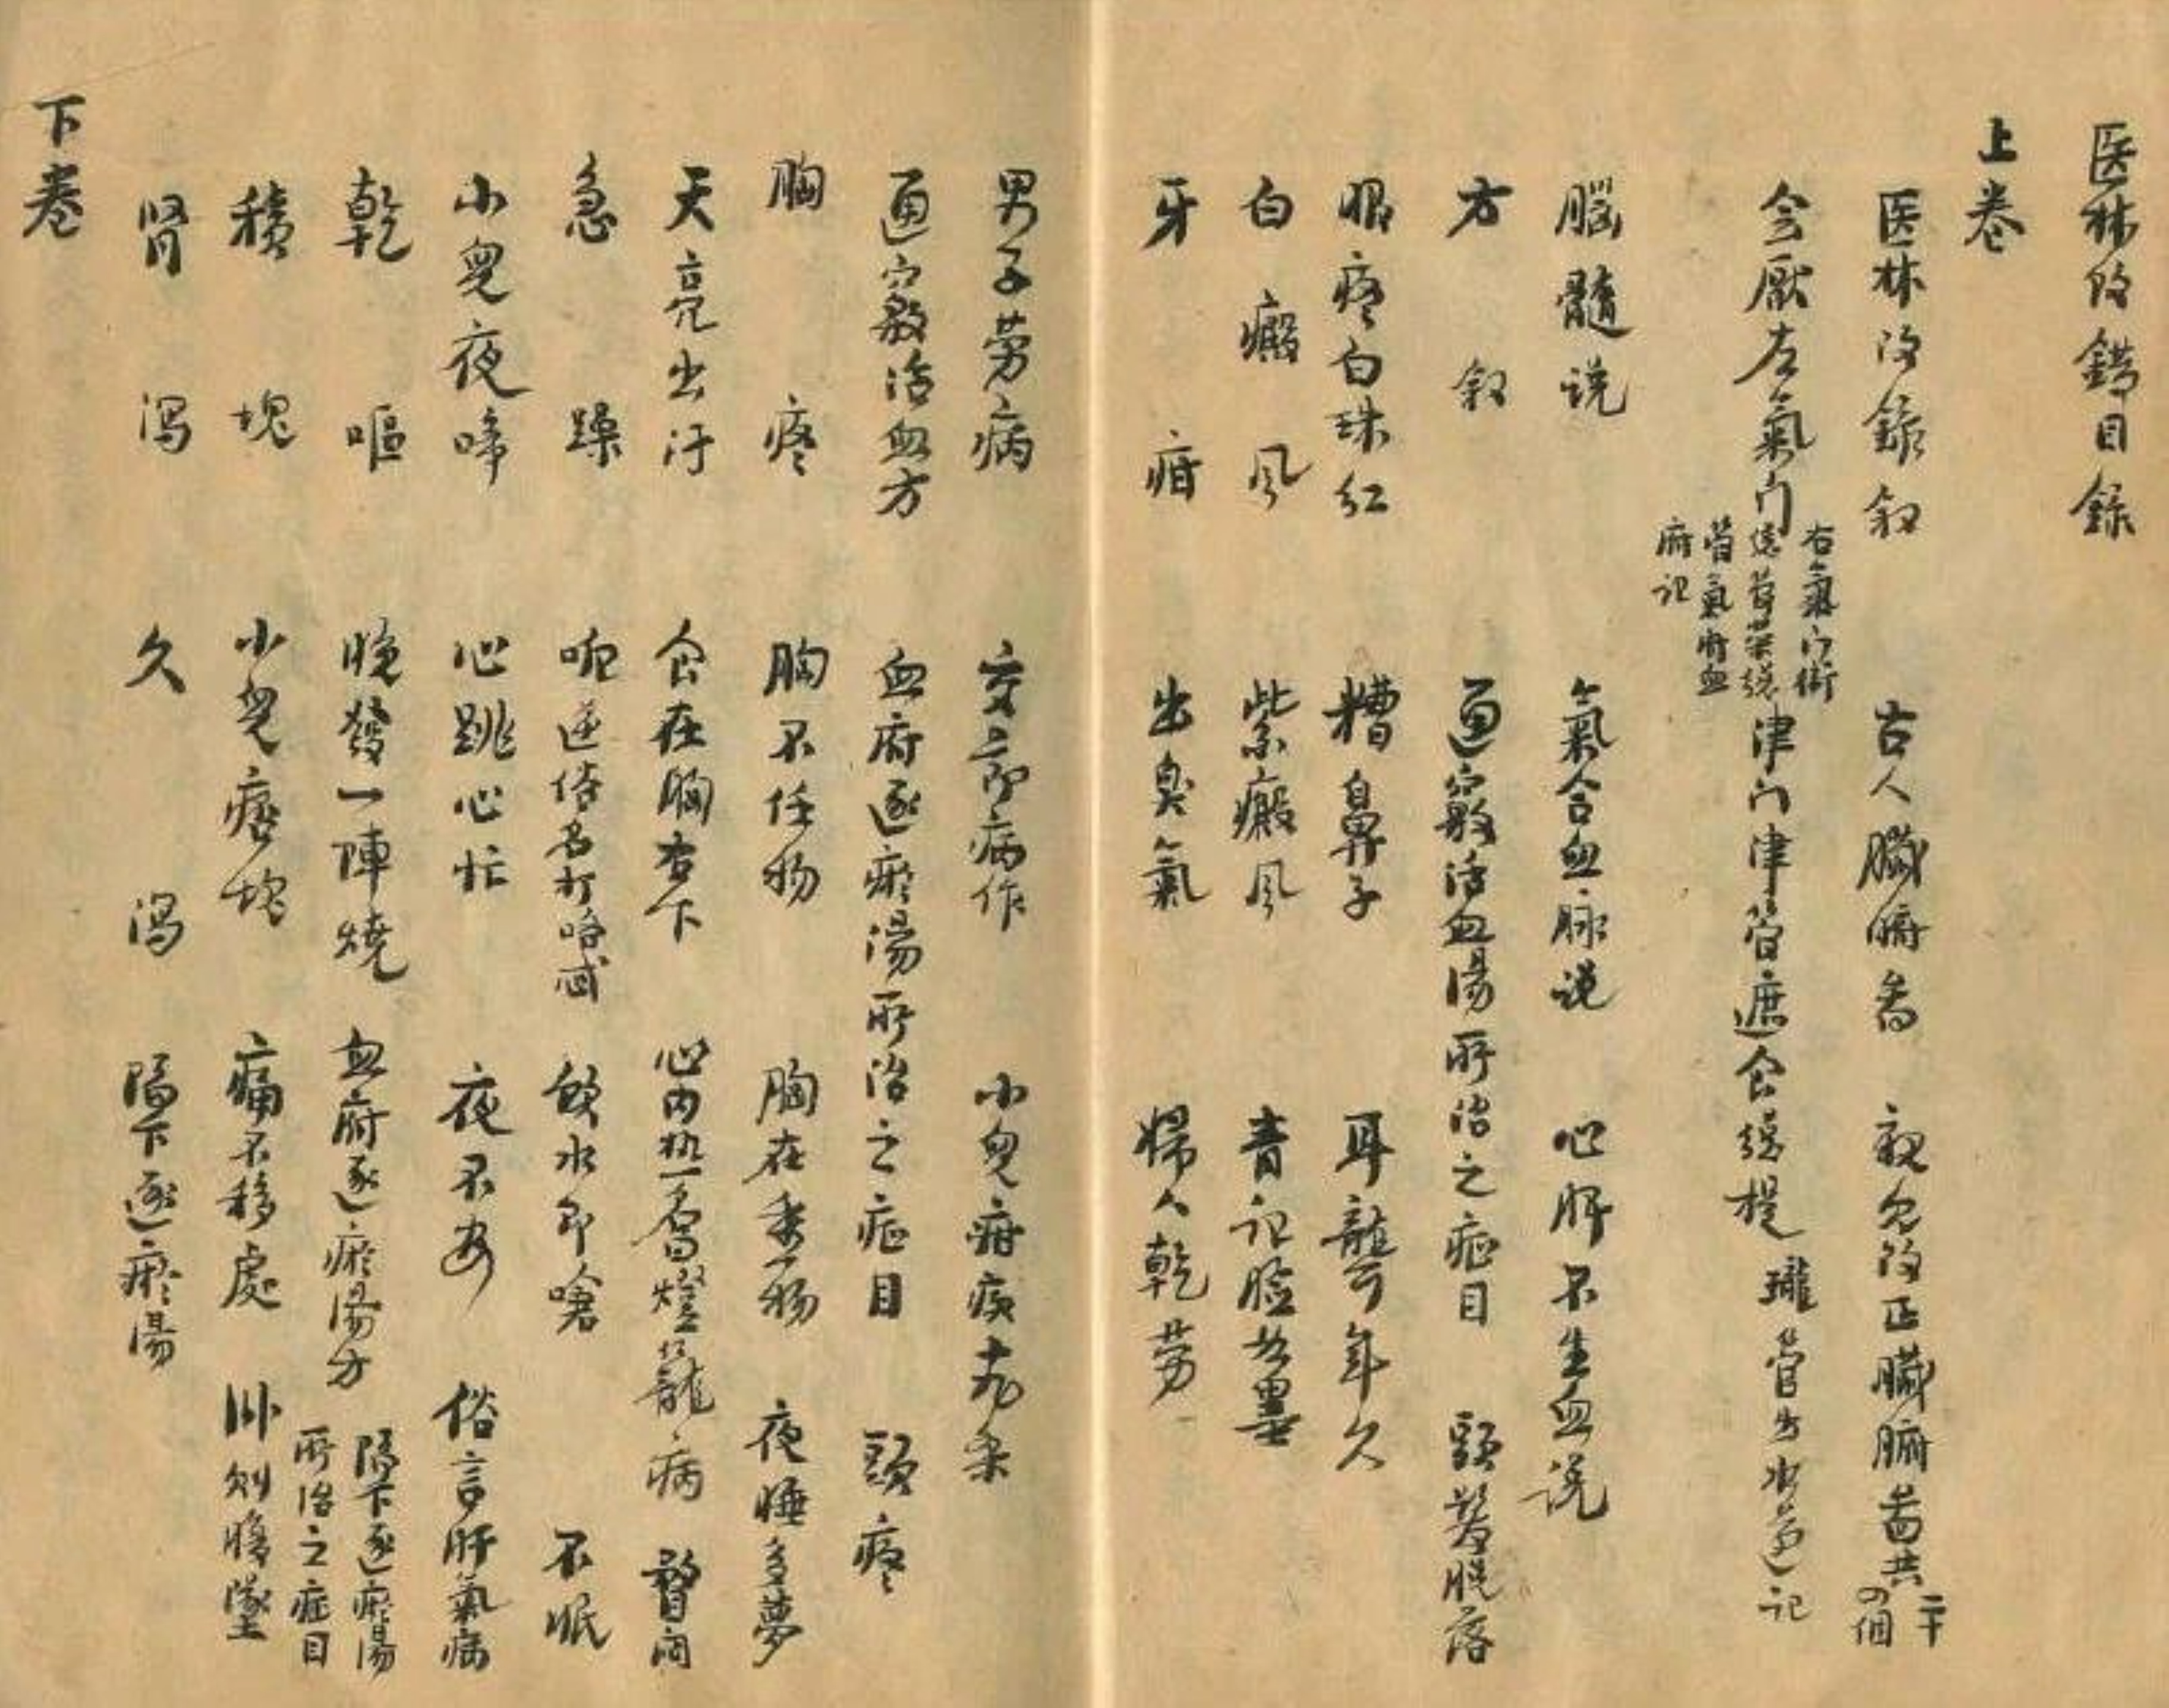 医林改錯目錄
上卷
医林改錯叙 古人臓腑畣 親見改正臓腑畣共二十四個
会厭左氣门右氣门衛緫管荣緫管氣府血府記 津门津管遮食緫提 瓏管出水道記
腦髓说 氣合血脉说 心肝不生血说
方叙 通竅活血湯所治之症目 頭髪脱落
眼疼白珠红 糟鼻子 耳聾年久
白癜风 紫癜风 青记脸如墨
牙疳 出臭氣 婦人乾劳
男子劳病 交節病作 小兒疳疾十九条
通竅活血方 血府逐瘀湯所治之症目 頭疼
胸疼 胸不任物 胸任重物 夜睡多夢
天亮出汗 食在胸右下 心内热名曰燈籠病 瞀闷
急躁 呃逆俗名打咯忒 飲水即嗆 不眠
小兒夜啼 心跳心忙 夜不安 俗言肝氣病
乾嘔 晚發一陣燒 血府逐瘀湯方 隔下逐瘀湯所治之症目
積塊 小兒痞塊 痛不移處 卧则腹墜
肾泻 久泻 隔下逐瘀湯
下卷